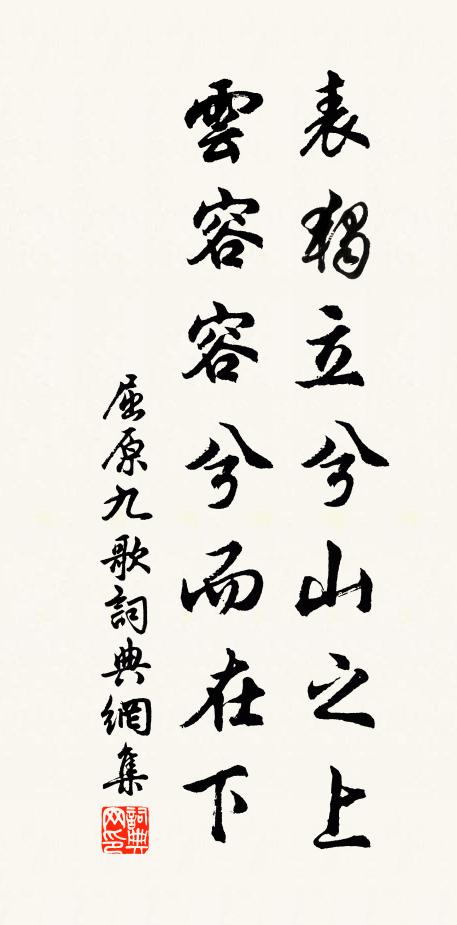 表獨立兮山之上
雲容容兮而在下
屈原九歌詞典網集
詞典网印